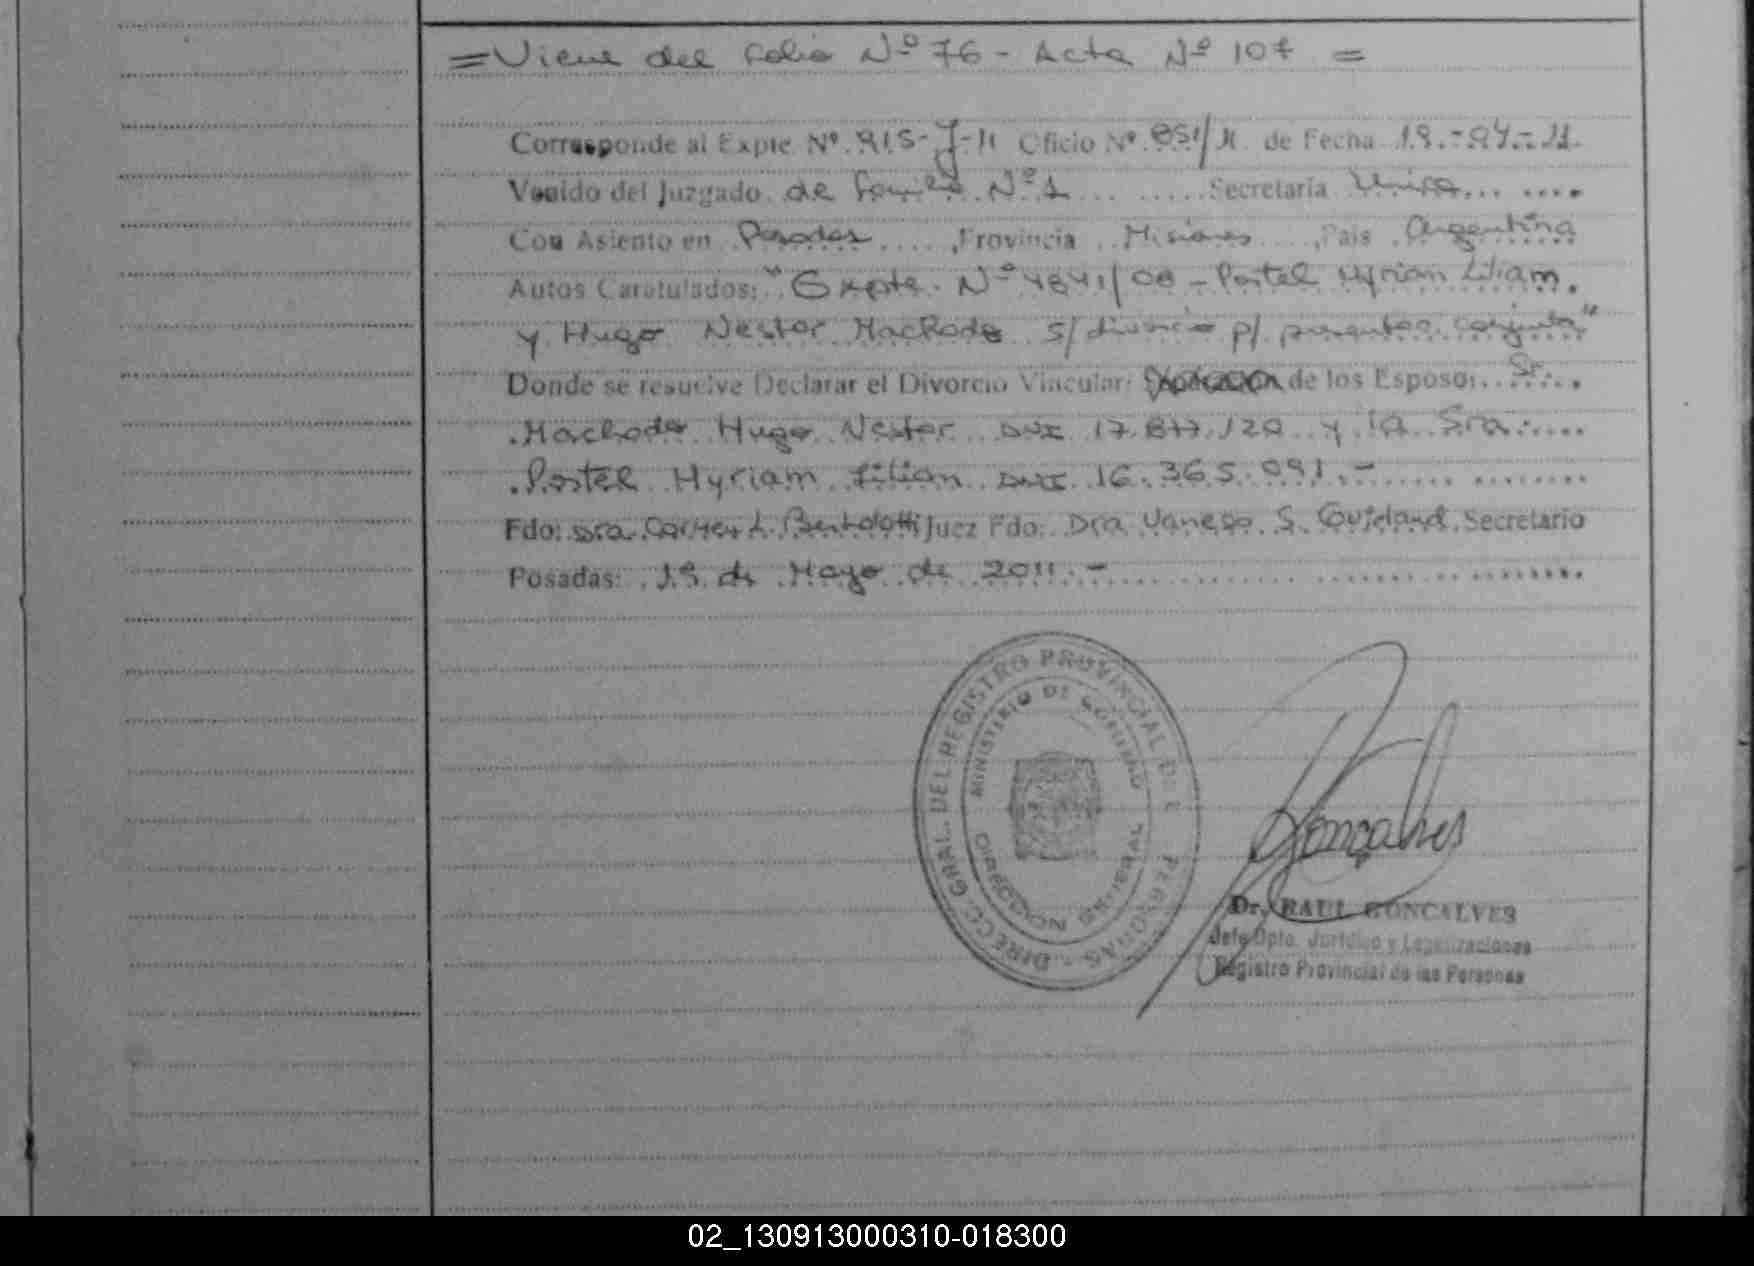 = Viene del folio Nº 76 - Acta Nº 107 =
Corresponde al Expte Nº 915-J-11 Oficio Nº 851/11 de Fecha 19-04-11
Venido del Juzgado de Familia Nº 1 Secretaria Unica
Con Asiento en Posadas, Provincia Misiones, Pais Argentina
Autos Caratulados: "Expte. Nº 4841/08 - Portel Myrian Liliam
y Hugo Nestor Machado s/ divorcio p/ conjunta"
Donde se resuelve Declarar el Divorcio Vincular de los Esposos Sr.
Machado Hugo Nestor DNI 17.877.120 y la Sra.
Portel Myriam Lilian DNI 16.365.091.-
Fdo: Dra. Carmen L. Bertolotti Juez Fdo: Dra Vanesa S. Secretario
Posadas: 19 de Mayo de 2011.-
DIRECC. GRAL. DEL REGISTRO PROVINCIAL DE PERSONAS
MINISTERIO DE GOBIERNO
DIRECCION GENERAL
Gonçalves
Dr. RAUL GONCALVES
Jefe Dpto. Jurídico y Legalizaciones
Registro Provincial de las Personas
02_130913000310-018300